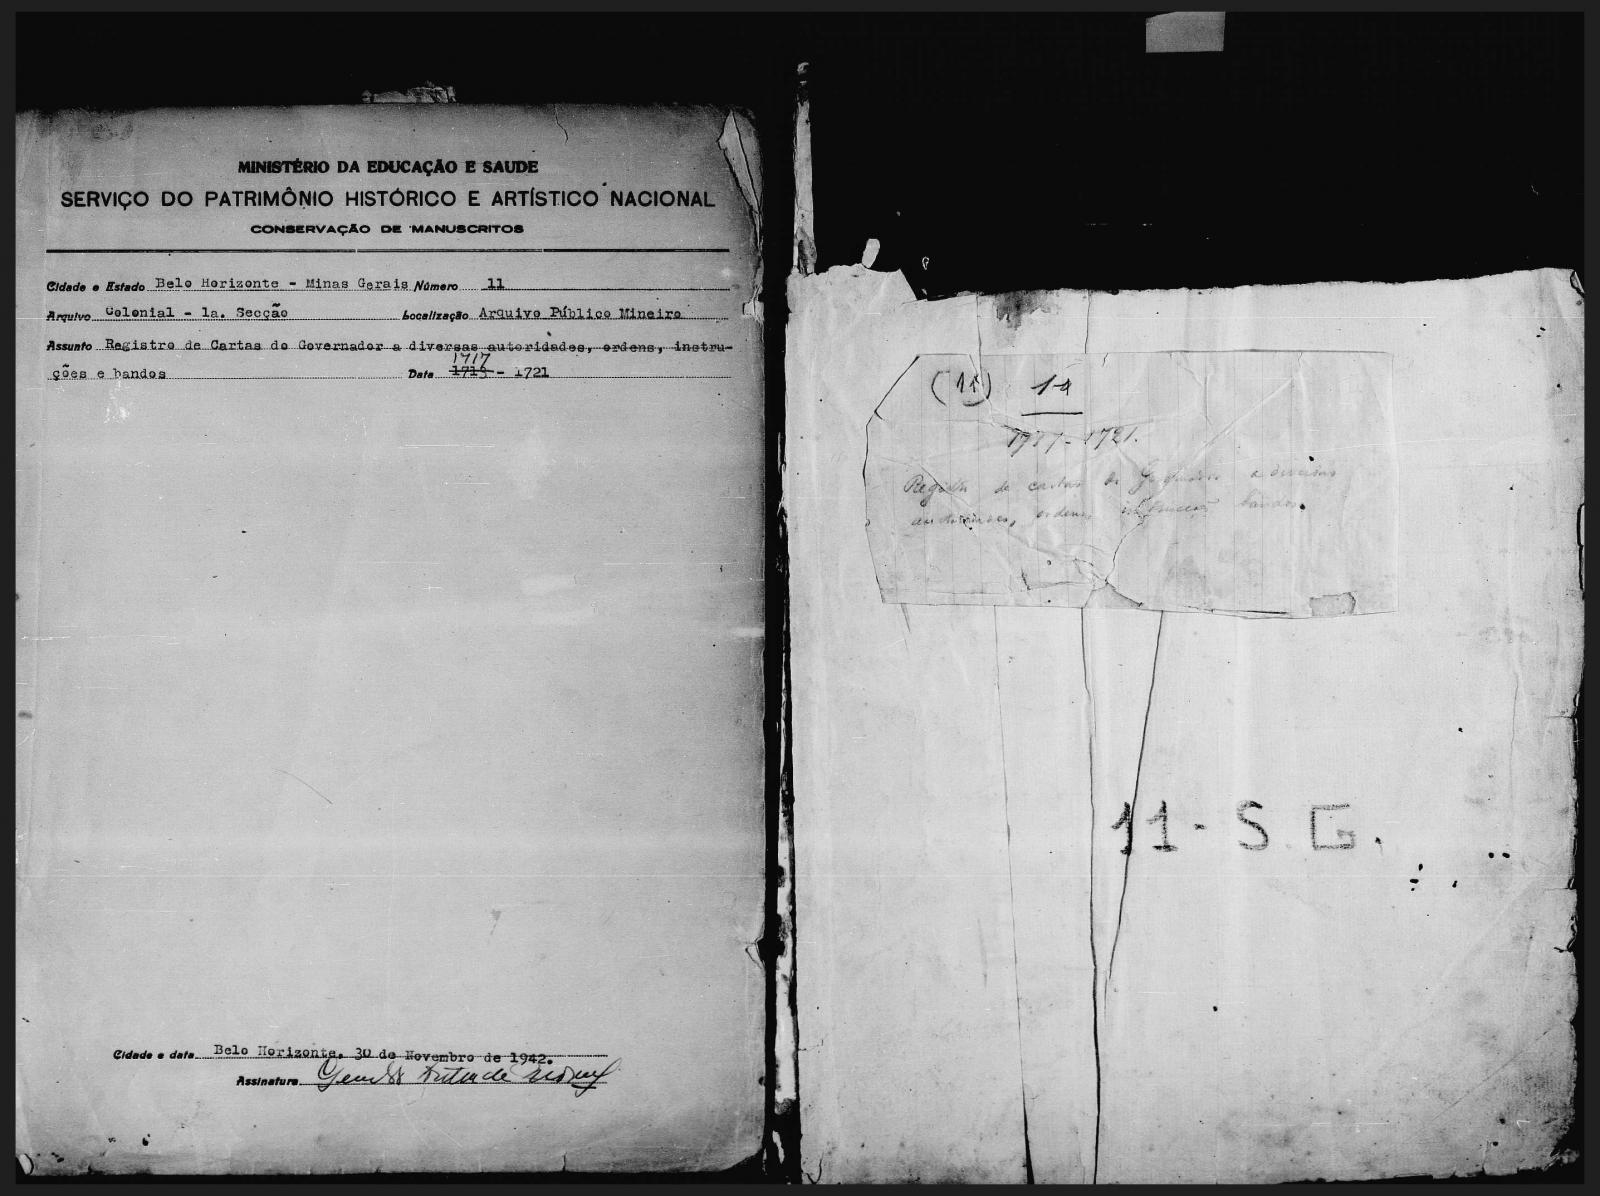 MINISTÉRIO DA EDUCAÇÃO E SAUDE
SERVIÇO DO PATRIMÔNIO HISTÓRICO E ARTÍSTICO NACIONAL
CONSERVAÇÃO DE MANUSCRITOS
Cidade e Estado Belo Horizonte - Minas Gerais Número 11
Arquivo Colonial - 1a. Secção Localização Arquivo Público Mineiro
Assunto Registro de Cartas do Governador a diversas autoridades, ordens, instru-
1717
ções e bandos Data 1713 - 1721
Cidade e data Belo Horizonte, 30 de Novembro de 1942.
Assinatura
(11)
1717-1721.
Registo de cartas do Governador a diversas
autoridades, ordens, instrucções bandos.
11 - S.G.